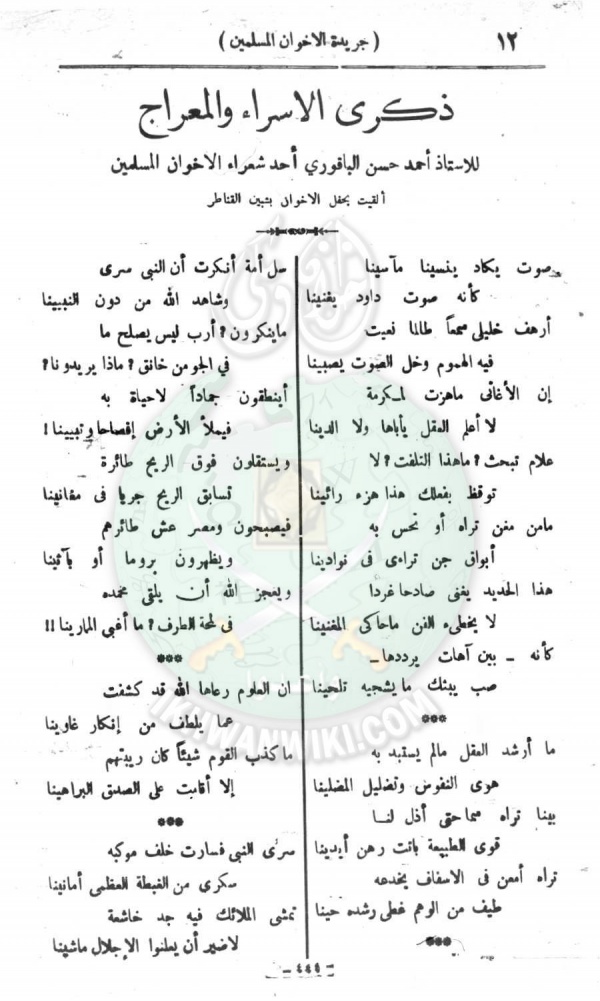 ١٢
( جريدة الاخوان المسلمين )
ذكرى الاسراء والمعراج
للاستاذ أحمد حسن الباقوري أحد شعراء الاخوان المسلمين
ألقيت بحفل الاخوان بشبين القناطر
صوت يكاد ينسينا مآسينا
كأنه صوت داود يغنينا
أرهف خليلي سمعاً طالما نعيت
فيه الهموم وخل الصوت يصبينا
إن الأغانى ماهزت لمكرمة
لا أعلم العقل يأباها ولا الدينا
علام تبحث؟ ماهذا التلفت؟ لا
توقظ بفعلك هذا هزء رائينا
مامن مغن تراه أو نحس به
أبواق جن تراءى فى نوادينا
هذا الحديد يغنى صادحا غردا
لا يخطىء الفن ماحاكى المغنينا
كأنه _ بين آهات يرددها _
صب يبثك مايشجيه تلحينا
***
ما أرشد العقل مالم يستبد به
هوى النفوس وتضليل المضلينا
بينا تراه سما حتى أذل لنا
قوى الطبيعة باتت رهن أيدينا
تراه أمعن فى الاسفاف يخدعه
طيف من الوهم غطى رشده حينا
***
سل أمة أنكرت أن النبى سرى
وشاهد الله من دون النبيينا
ماينكرون؟ أرب ليس يصلح ما
في الجو من خانق؟ ماذا يريدونا؟
أينطقون جماداً لاحياة به
فيملأ الأرض إفصاحا وتبيينا!
ويستقلون فوق الريح طائرة
تسابق الريح جريا فى مغانينا
فيصبحون ومصر عش طائرهم
ويظهرون بروما أو بآثينا
ويعجز الله أن يلقى محمده
فى لمحة الطرف؟ ما أغبى المارينا!!
***
ان العلوم رعاها الله قد كشفت
عما يلطف من إفكار غاوينا
ما كذب القوم شيئاً كان ريبتهم
إلا أقامت على الصدق البراهينا
***
سرى النبي فسارت خلف موكبه
سكرى من الغبطة العظمى أمانينا
تمشى الملائك فيه جد خاشعة
لاضير أن يعلنوا الإجلال ماشينا
ـ ٤٤٤ ـ
IKHWANWIKI.COM